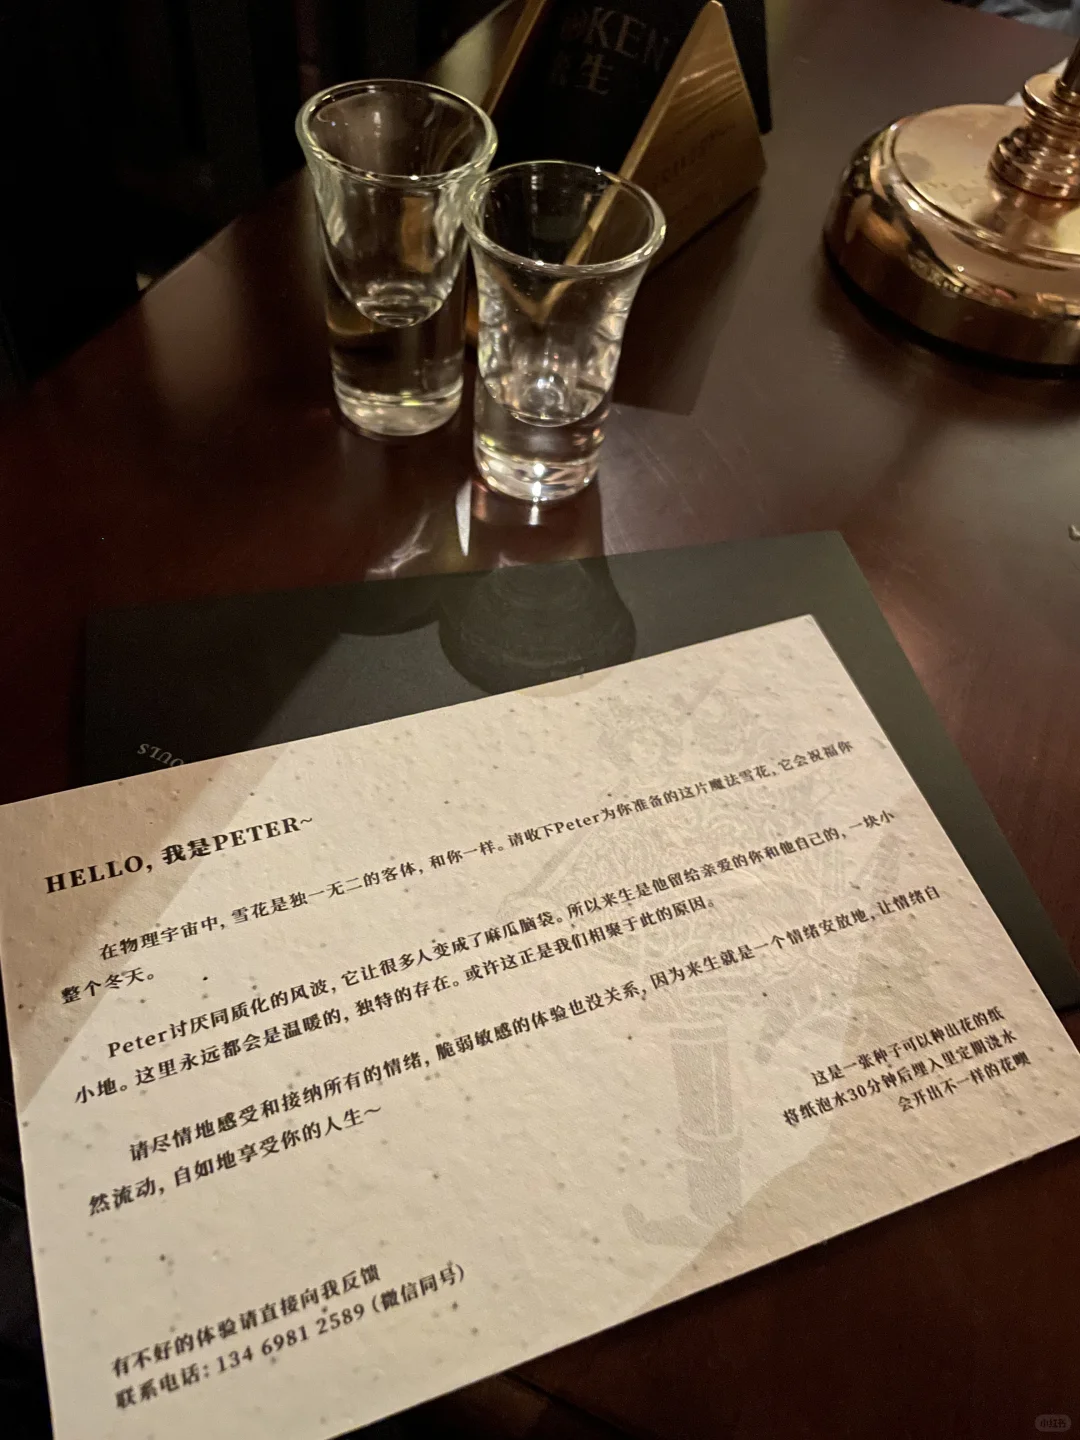 KEN
生
OULS
HELLO, 我是PETER~
在物理宇宙中, 雪花是独一无二的客体, 和你一样。请收下Peter为你准备的这片魔法雪花, 它会祝福你
整个冬天。
Peter讨厌同质化的风波, 它让很多人变成了麻瓜脑袋。所以来生是他留给亲爱的你和他自己的, 一块小
小地。这里永远都会是温暖的, 独特的存在。或许这正是我们相聚于此的原因。
请尽情地感受和接纳所有的情绪, 脆弱敏感的体验也没关系, 因为来生就是一个情绪安放地, 让情绪自
然流动, 自如地享受你的人生~
这是一张种子可以种出花的纸
将纸泡水30分钟后埋入里定期浇水
会开出不一样的花呗
有不好的体验请直接向我反馈
联系电话: 134 6981 2589 (微信同号)
小红书